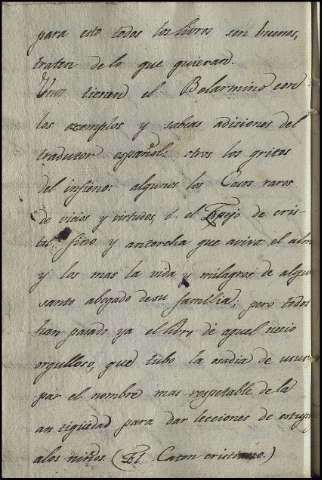 para esto todos los libros son buenos,
traten de lo que quieran.
Unos tienen el Belarmino con
los exemplos y sabias adiciones del
tradutor español: otros los gritos
del infierno: algunos los Casos raros
de vicios y virtudes, o el Espejo de cris-
tal fino y antorcha que aviva el alma
y los mas la vida y milagros de algun
santo abogado de su familia; pero todos
han pasado ya el libro de aquel necio
orgulloso, que tubo la osadia de usur-
par el nombre mas respetable de la
antigüedad para dar lecciones de
alos niños. (El Caton cristiano.)